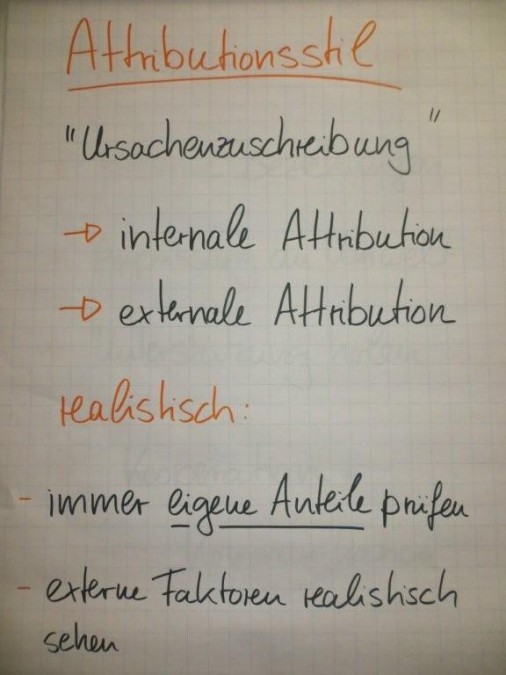 Attributionsstil
"Ursachenzuschreibung"
→ internale Attribution
→ externale Attribution
realistisch:
- immer eigene Anteile prüfen
- externe Faktoren realistisch
sehen